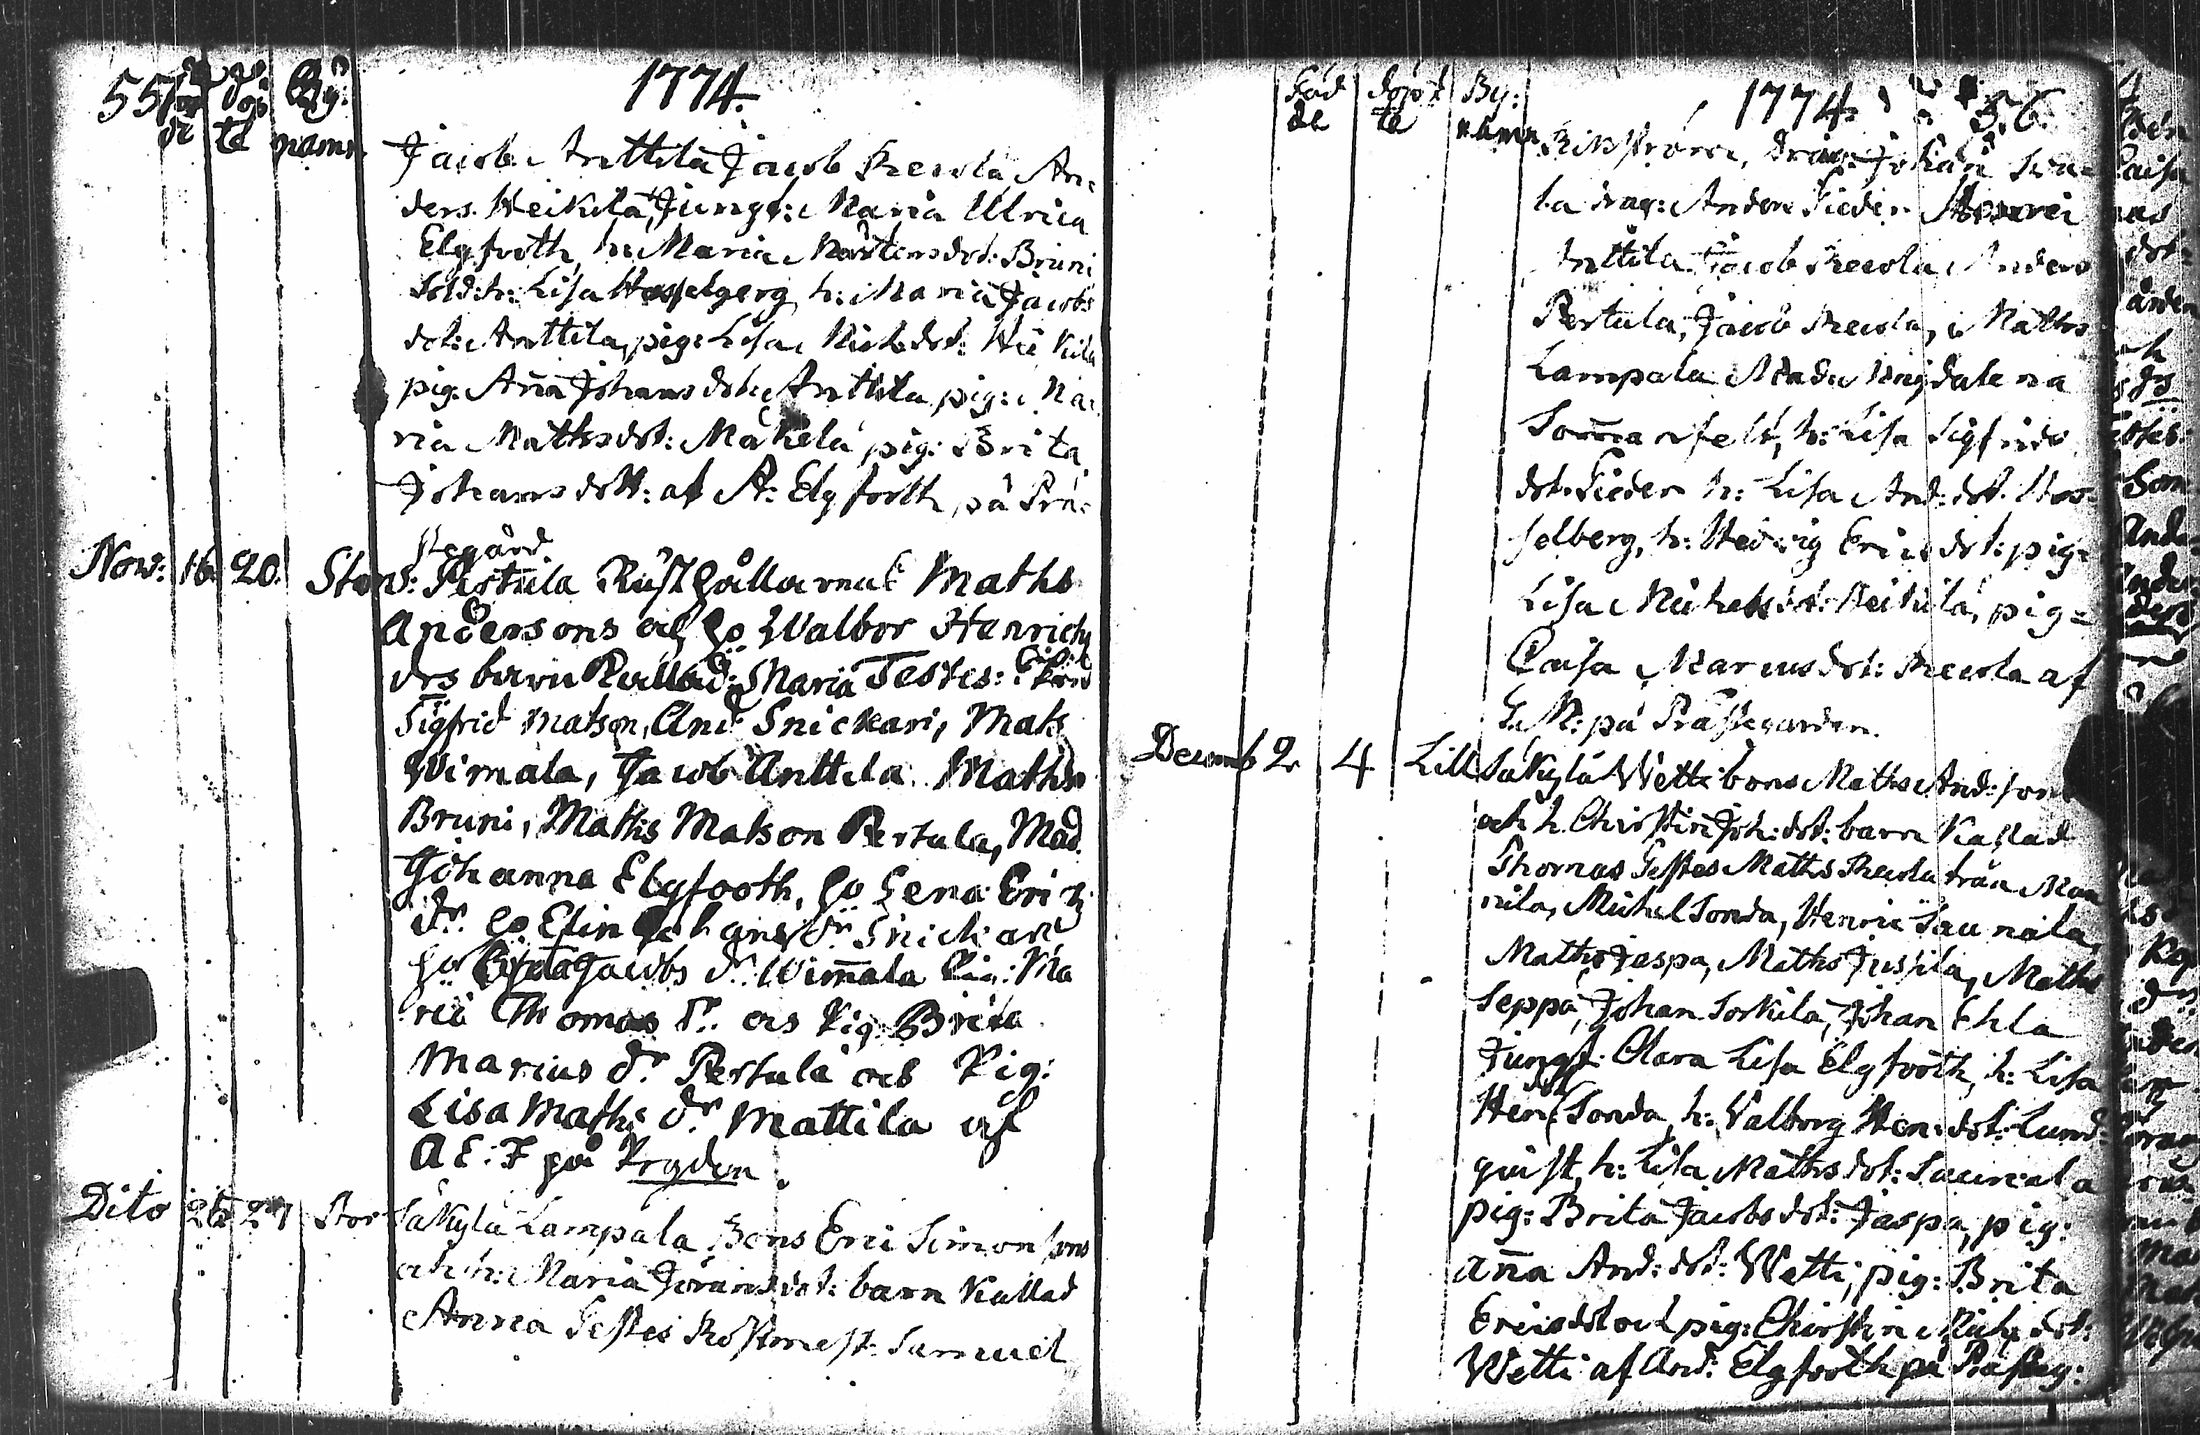 55 Föd döp By: 1774.
de te namn
Jacob Anttila Jacob Keuola An-
ders Heikila, Jungf: Maria Ulrica
Elgfooth, h: Maria Mårtensdot: Bruni
Sold: h: Lisa Hasselgerg, h: Maria Jacobs
dot: Anttila, pig: Lisa Mich:dot: Heikila
pig: Aña Johansdot: Anttila pig: Ma-
ria Mathsdot: Mäkelä pig: Brita
Johansdott: af A: Elgfooth på Prä-
stegård.
Nov: 16 20. Stens: Pertula Rusthållarens Maths
Andersons och ho Walbor Henrichs
drs barn Kallad: Maria Testes:
Sigfrid Matson, And Snickari, Mats
Wimala, Jacob Anttila Maths
Bruni, Maths Matson Pertula, Mad
Johanna Elgfooth, ho Lena Erics
dr. ho Elin Johans dr. Snickari
ho Jacobs dr. Wim̄ala Pig: Ma
ria Thomas dr. os Pig: Brita
Marcus dr. Pertula os Pig:
Lisa Maths dr Mattila af
A E: F på Prgden.
Dito 26 27 Stor Säkylä Lampala Bons Eric Simonsons
och h: Maria Jöransdot: barn Kallad
Anna Testes Rostmest: Samuel
Föd döpt By: 1774. 56.
de te namn
Rihström, drag: Johan
la drag: Anders Fieder
Anttila Jacob Keuola Anders
Pertula, Jacob Keuola, Maths
Lampala Mad: Magdalena
Som̄arfelt, h: Lisa Sigfrids
dot: Fieder h: Lisa And: dot. Has-
selberg, h: Hedvig Ericsdot: pig:
Lisa Michelsdot: Heikilä, pig:
Caisa Marcusdot: Keuola af
G. M: på Prästegården.
Decemb 2. 4 Lill Säkylä Wetti bons Maths And:sons
och h. Christin Joh: dot: barn Kallad
Thomas Testes Maths Keuola från Man
nila, Michel Sonda, Henric Saunala,
Maths Jaspa, Maths Jussila, Maths
Seppä, Johan Sorkila, Johan Ehla
Jungf: Clara Lisa Elgfooth, h: Lisa
Hen: dot Sonda, h: Valborg Hen: dot: Lund-
quist, h: Lisa Mathsdot: Saunala
pig: Brita Jacobsdot: Jaspa, pig:
Aña And: dot: Wetti, pig: Brita
Ericsdot och pig: Christin Mich: dot:
Wetti af And: Elgfooth på Prästeg: